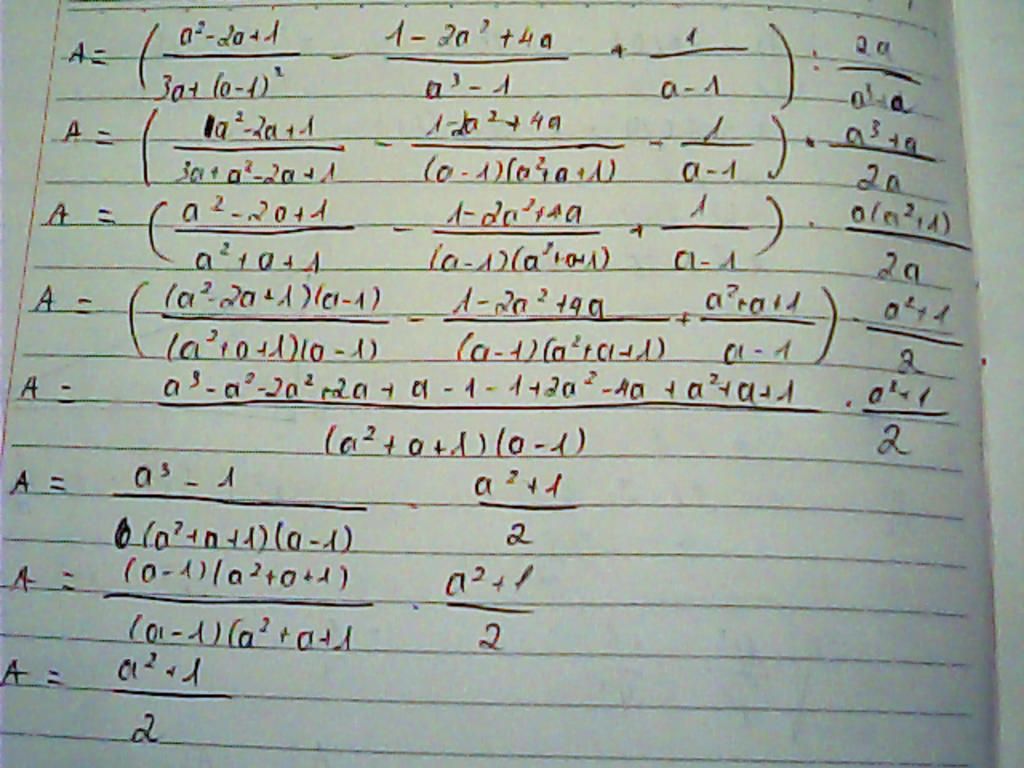 A = ( (a² - 2a + 1)/(3a + (a-1)²) - (1 - 2a² + 4a)/(a³ - 1) + 1/(a - 1) ) : 2a/(a³ + a)
A = ( (a² - 2a + 1)/(3a + a² - 2a + 1) - (1 - 2a² + 4a)/((a - 1)(a² + a + 1)) - 1/(a - 1) ) · (a³ + a)/2a
A = ( (a² - 2a + 1)/(a² + a + 1) - (1 - 2a² + 4a)/((a - 1)(a² + a + 1)) + 1/(a - 1) ) · a(a² + 1)/2a
A = ( (a² - 2a + 1)(a - 1)/((a² + a + 1)(a - 1)) - (1 - 2a² + 4a)/((a - 1)(a² + a + 1)) + (a² + a + 1)/(a - 1) ) · (a² + 1)/2
A = (a³ - a² - 2a² + 2a + a - 1 - 1 + 2a² - 4a + a² + a + 1)/((a² + a + 1)(a - 1)) · (a² + 1)/2
A = (a³ - 1)/((a² + a + 1)(a - 1)) · (a² + 1)/2
A = (a - 1)(a² + a + 1)/((a - 1)(a² + a + 1) · (a² + 1)/2
A = (a² + 1)/2